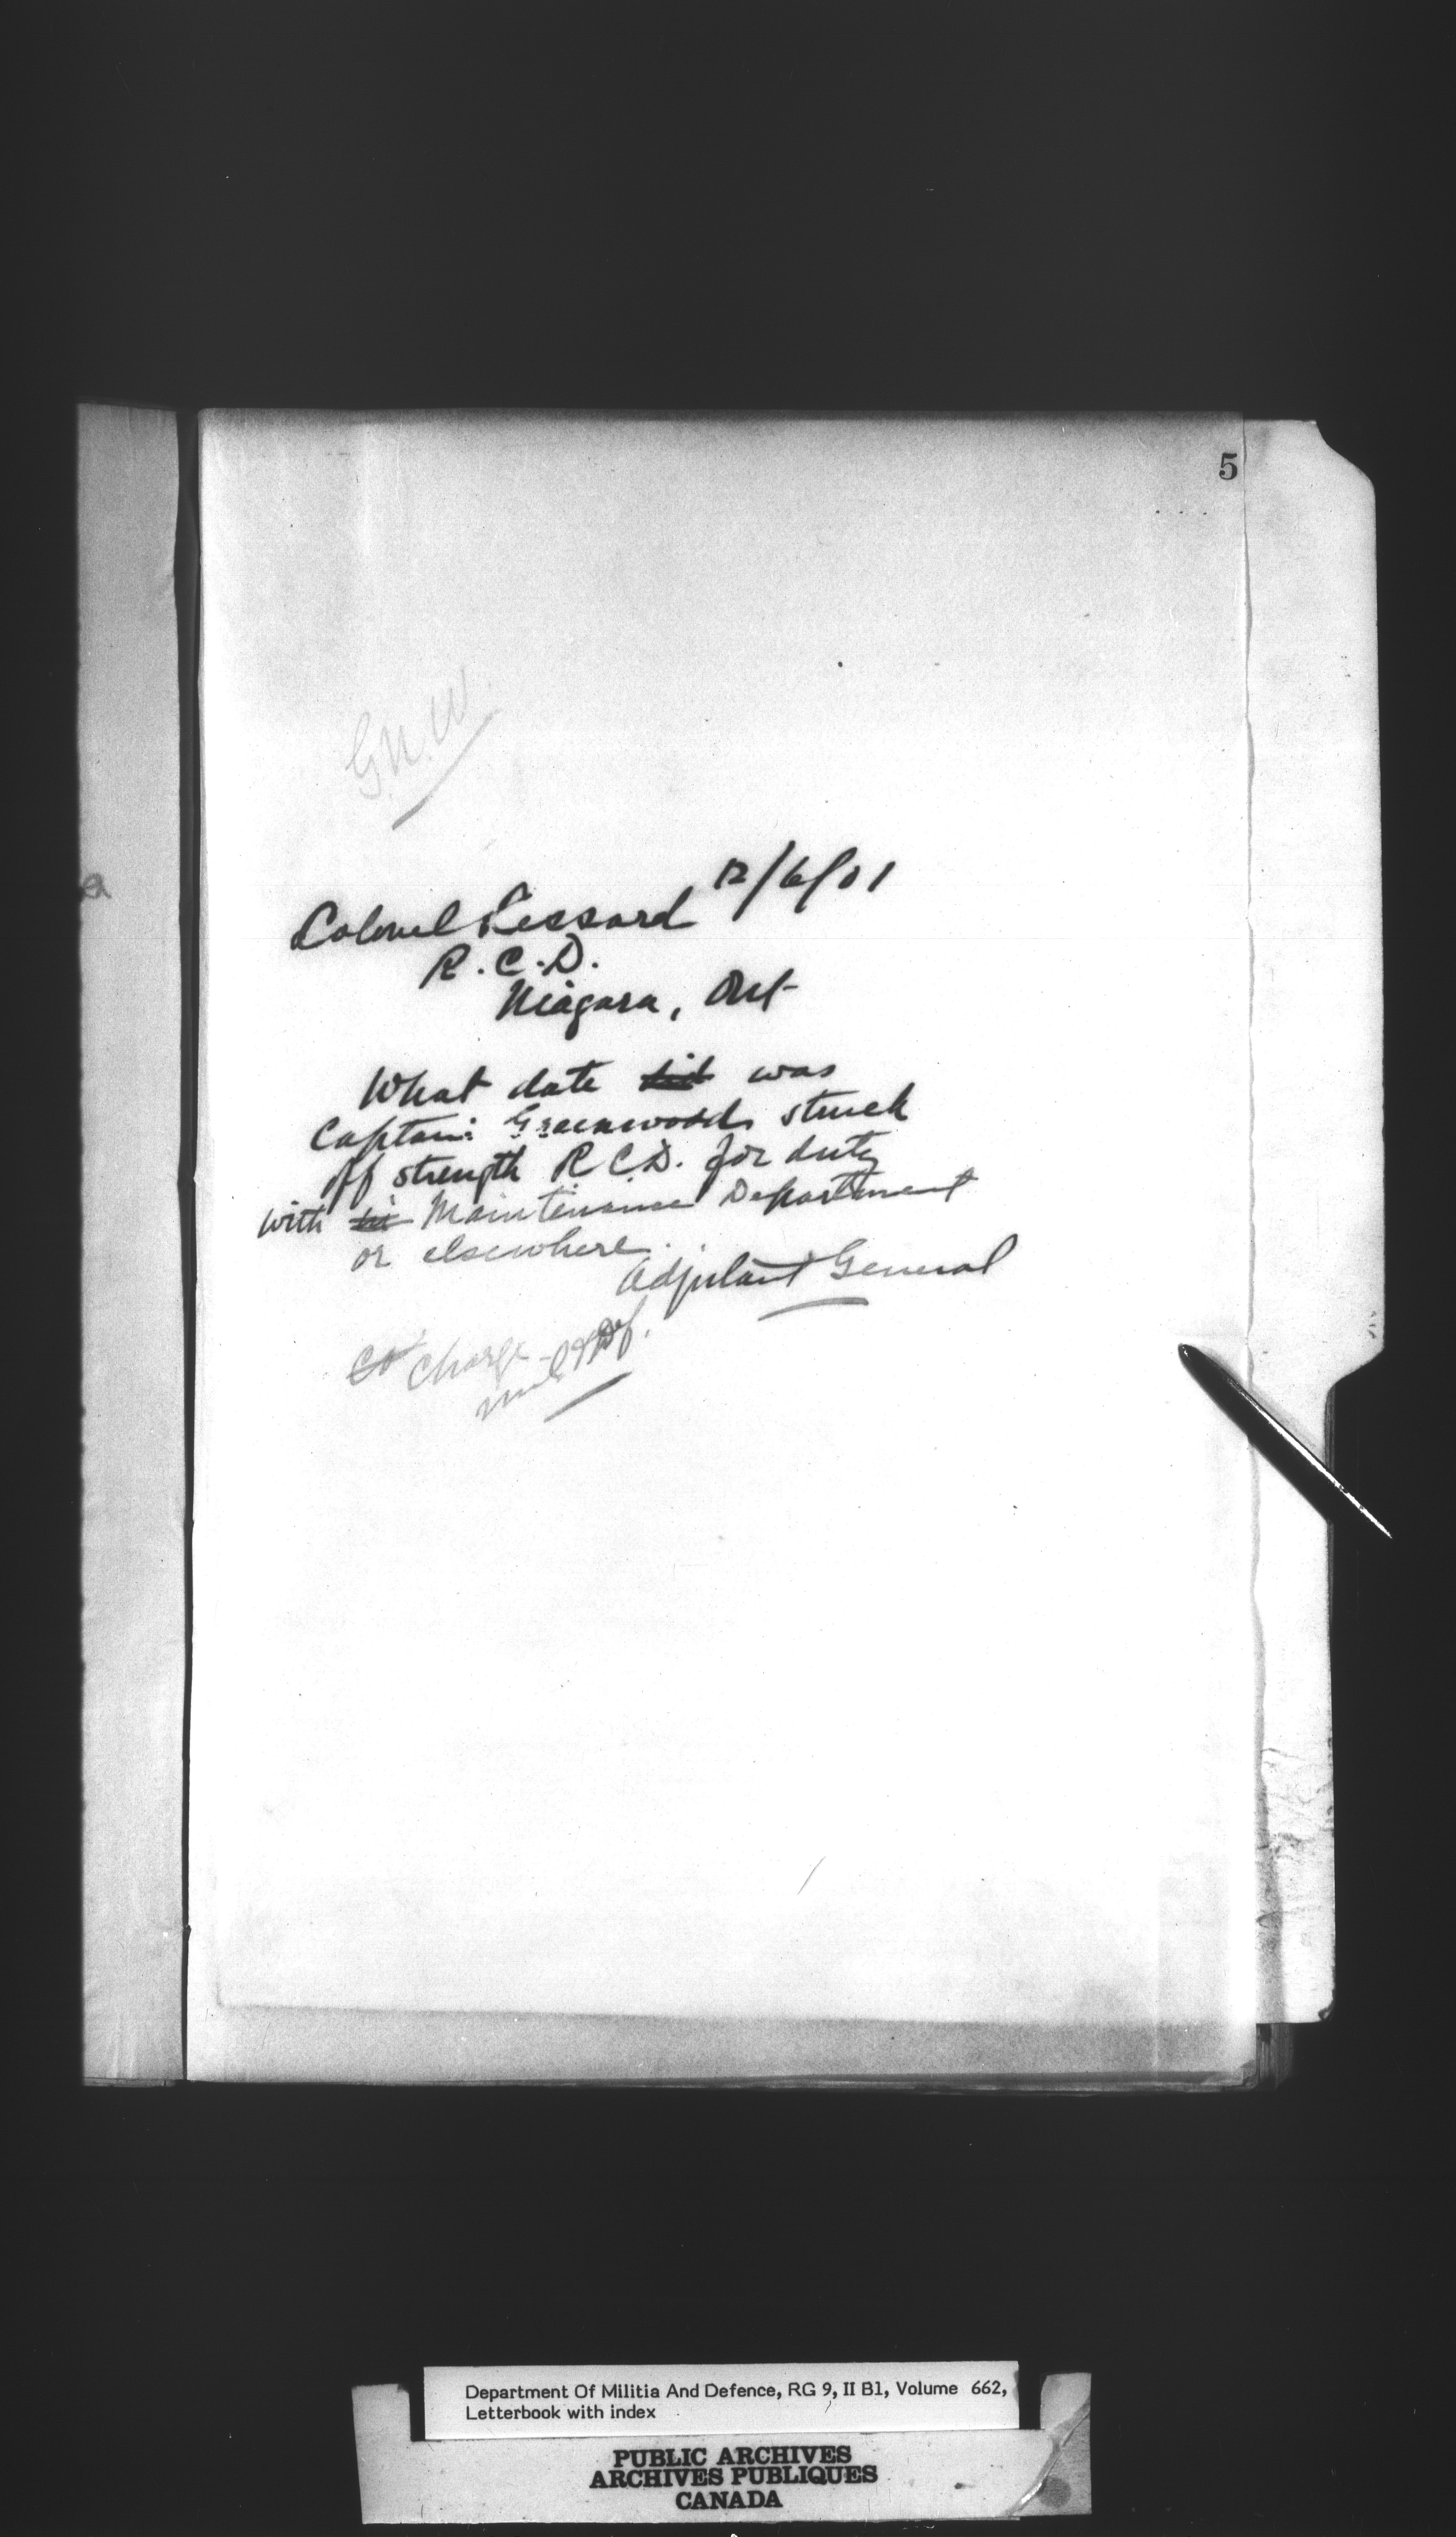 5
G.N.W.
12/6/01
Colonel Lessard
R.C.D.
Niagara, Ont
What date did was
Captain Greenwood struck
off strength R C D. for duty
with Maintenance Department
or elsewhere.
Adjutant General
Charge -
Mil & Def.
Department Of Militia And Defence, RG 9, II B1, Volume 662,
Letterbook with index
PUBLIC ARCHIVES
ARCHIVES PUBLIQUES
CANADA